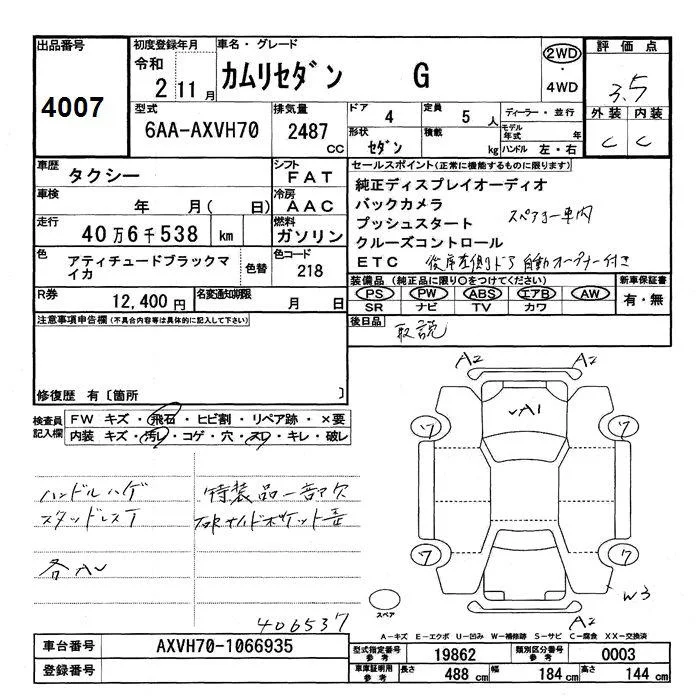 出品番号
4007
初度登録年月
令和
2 11月
車名・グレード
カムリセダン G
2WD
・
4WD
評価点
3.5
外装 内装
C C
型式
6AA-AXVH70
排気量
2487 CC
ドア 4
定員 5 人
ディーラー・並行
形状 セダン
積載 kg
モデル年式 年
ハンドル 左・右
車歴 タクシー
シフト FAT
車検 年 月( 日)
冷房 AAC
走行 40万6千538 km
燃料 ガソリン
色 アティチュードブラックマイカ
色替
色コード 218
R券 12,400円
名変通知期限 月 日
セールスポイント(正常に機能するものに限ります)
純正ディスプレイオーディオ
バックカメラ
プッシュスタート スペアキー車内
クルーズコントロール
ETC 後席左側ドア自動オープナー付き
装備品(純正品に限り○をつけてください)
PS PW ABS エアB AW
SR ナビ TV カワ
新車保証書
有・無
後日品 取説
注意事項申告欄(不具合内容等は具体的に記入して下さい)
修復歴 有〔箇所 〕
検査員記入欄
FW キズ・飛石・ヒビ割・リペア跡・×要
内装 キズ・汚レ・コゲ・穴・スレ・キレ・破レ
ハンドルハゲ
スタッドレスT
各AU
特装品一部欠
406537
A2 A2
A1
ワ ワ
ワ ワ
W3
A2
スペア
A−キズ E−エクボ U−凹み W−補修跡 S−サビ C−腐食 XX−交換済
車台番号 AXVH70-1066935
登録番号
型式指定番号 参考 19862
類別区分番号 参考 0003
車庫証明用 参考
長さ 488 cm
幅 184 cm
高さ 144 cm